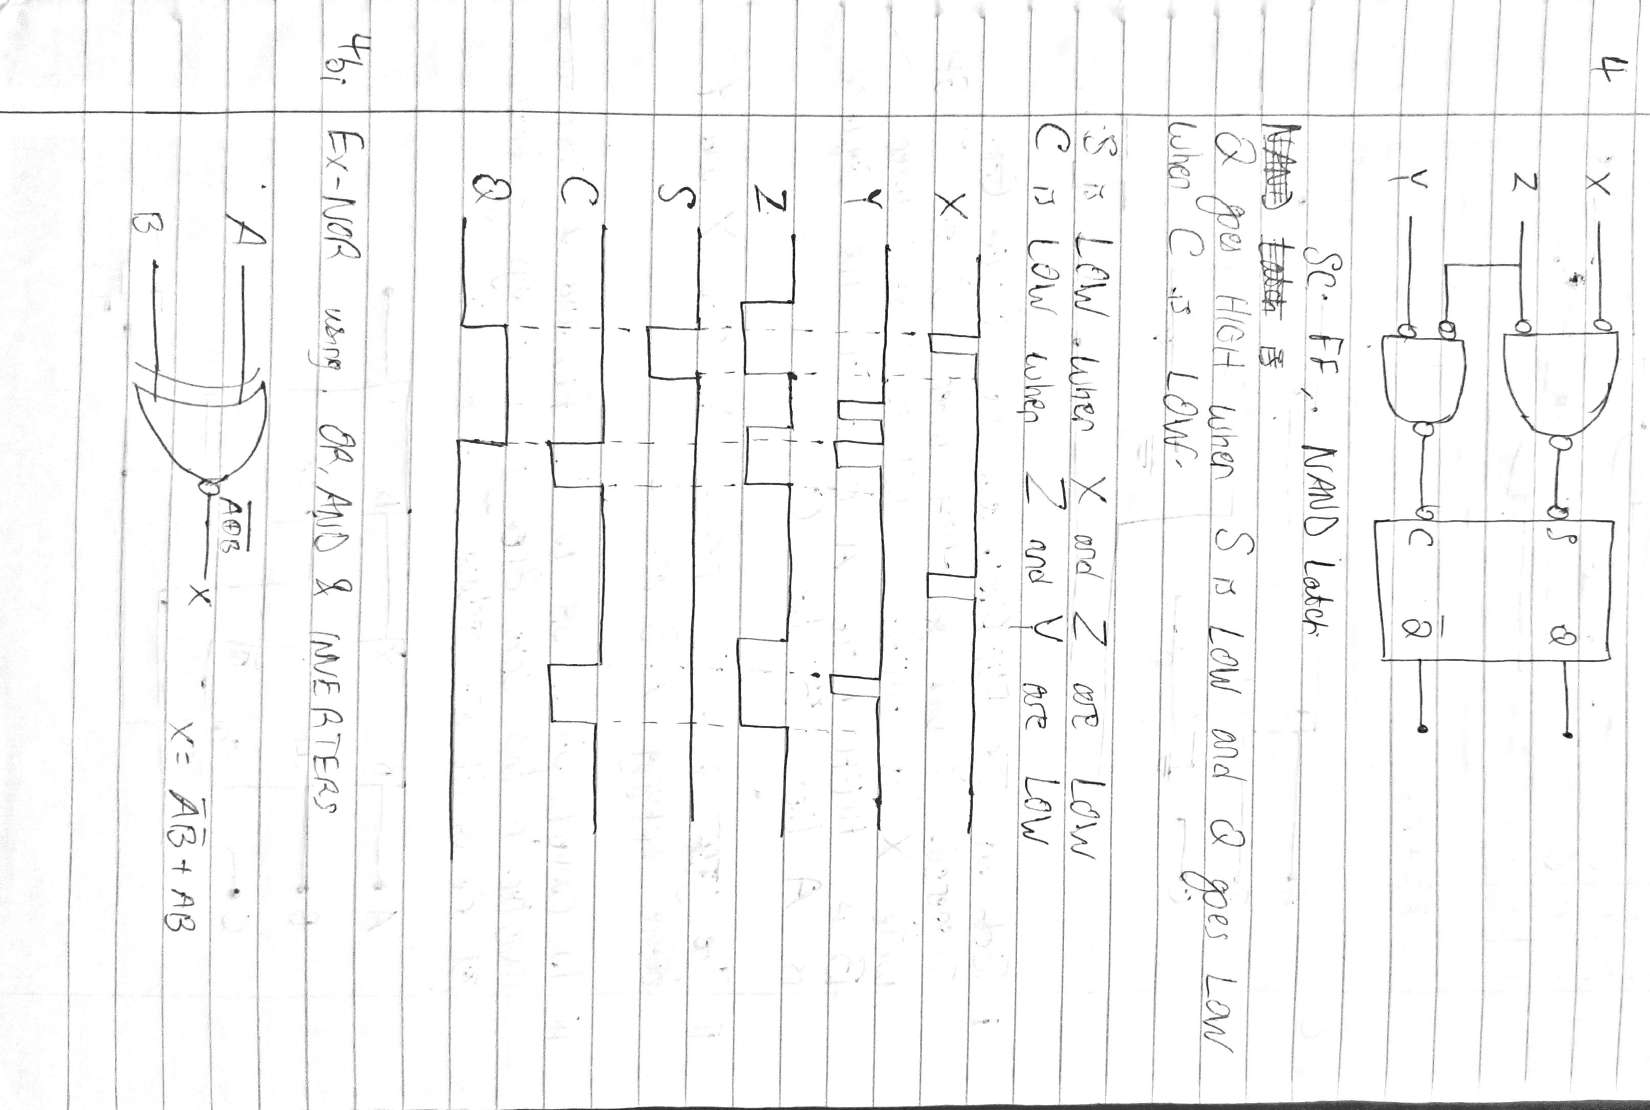 4
X
Z
Y
S
Q
C
Q̅
SC. FF, NAND Latch
NAND Latch
Q goes HIGH when S is LOW and Q goes LOW
when C is LOW.
S is LOW when X and Z are LOW
C is LOW when Z and Y are LOW
X
Y
Z
S
C
Q
4bi Ex-NOR using OR, AND & INVERTERS
A
B
A̅⊕̅B̅
X
X = A̅B̅ + AB